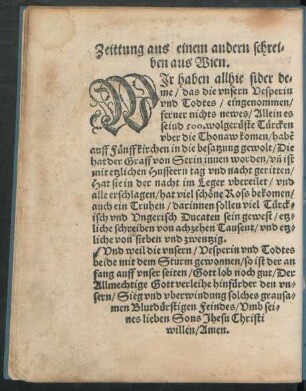 Zeittung aus einem andern schrei-
ben aus Wien.
WJr haben allhie sider de-
me / das die vnsern Vesperin
vnd Todtes / eingenommen /
ferner nichts newes / Allein es
seind 500. wolgerüste Türcken
vber die Thonaw komen / habē
auff Fünffkirchen in die besatzung gewolt / Die
hat der Graff von Serin innen worden / vñ ist
mit etzlichen Hussern tag vnd nacht geritten /
Hat sie in der nacht im Leger vbereilet / vnd
alle erschlagen / hat viel schöne Ross bekomen /
auch ein Truhen / darinnen sollen viel Türck-
isch vnd Vngerisch Ducaten sein gewest / etz-
liche schreiben von achzehen Tausent / vnd etz-
liche von sieben vnd zwentzig.
Vnd weil die vnsern / Vesperin vnd Todtes
beide mit dem Sturm gewonnen / so ist der an
fang auff vnser seiten / Gott lob noch gut / Der
Allmechtige Gott verleihe hinfürder den vn-
sern / Sieg vnd vberwindung solches grausa-
men Blutdürstigen Feindes / Vmb sei-
nes lieben Sons Jhesu Christi
willen / Amen.